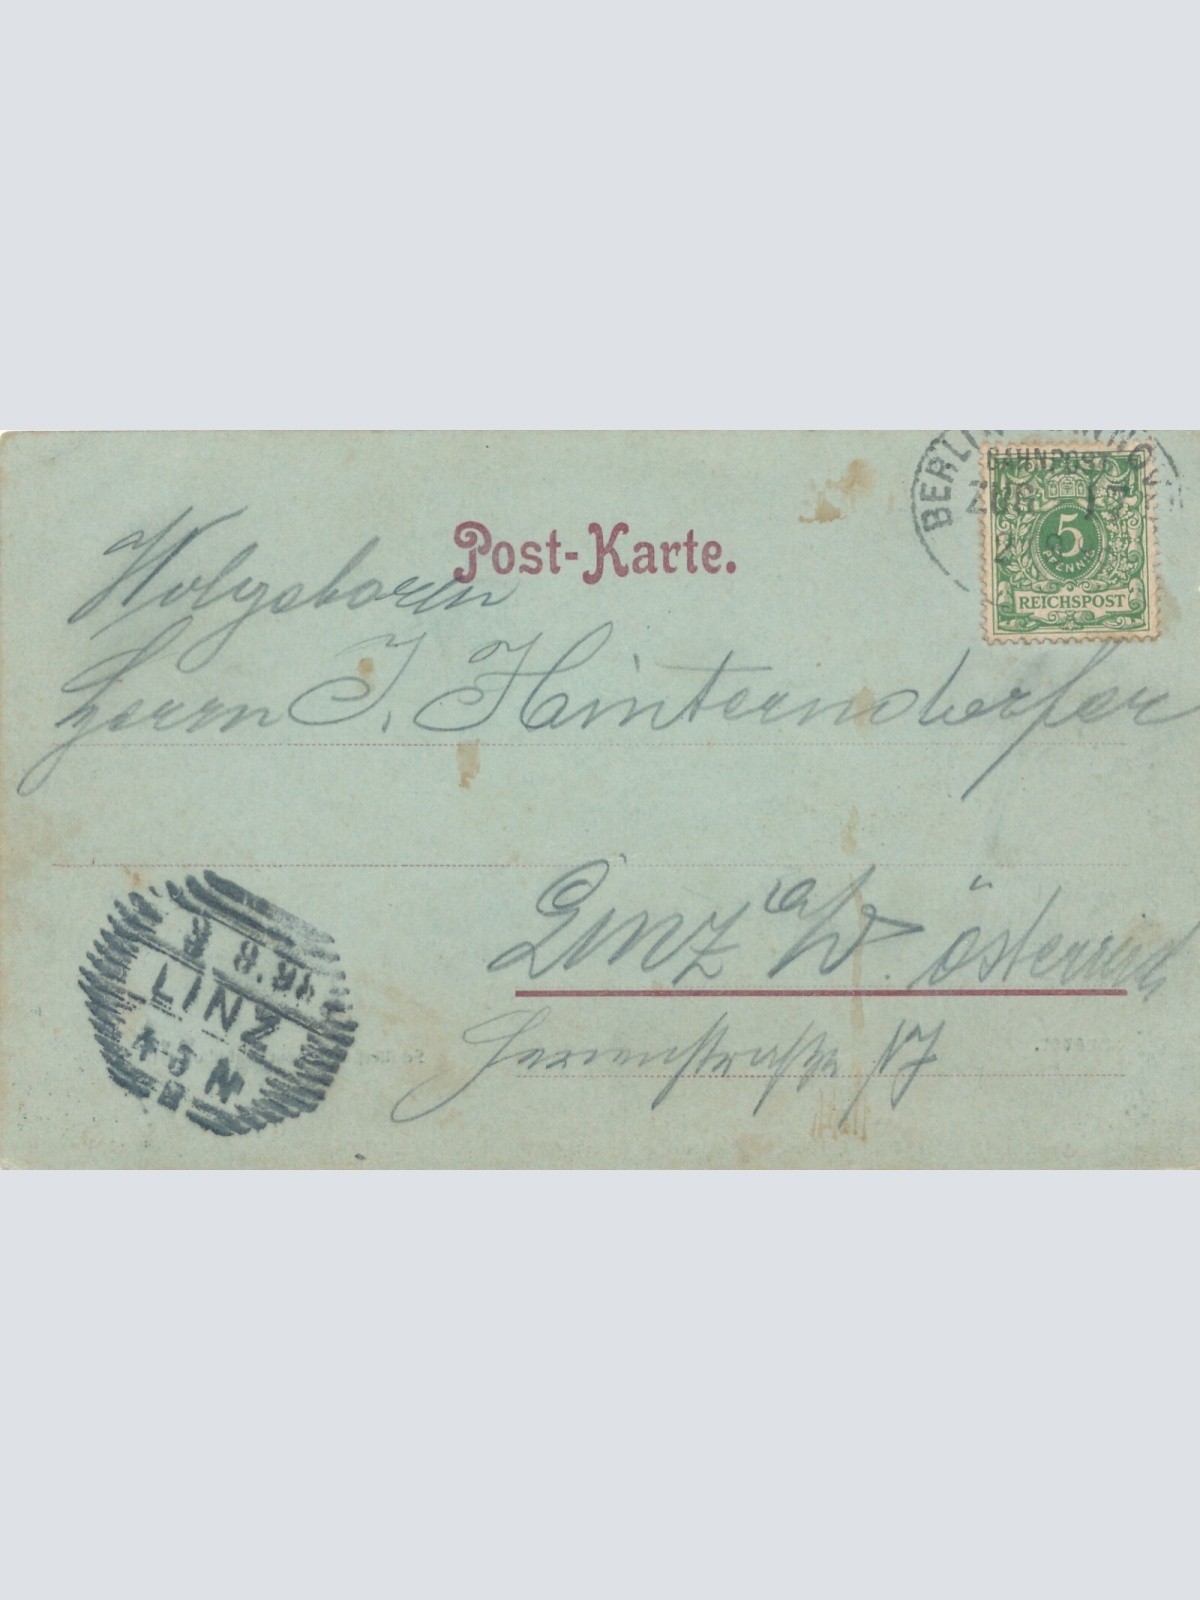 Post-Karte.
BERLIN
BAHNPOST
ZUG
5
PFENNIG
REICHSPOST
Wolgeboren
Herrn J. Hinterndorfer
Linz a/D. Österreich
Herrenstraße 17
LINZ